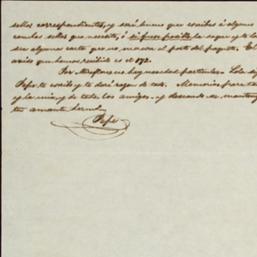 sellos correspondientes, y será bueno que escribas á alguno
con los sellos que necesita, ó si fuese posible la saque y te la
sin alguna carta que no marca el porte del paquete. El
aviso que hemos recibido es el 172.
Por Miraflores no hay novedad particular. Lola
Pepe, te escribe y te dará razon de todo. Memorias para
y la mia y de todos los amigos y deseando
tu amante herm.
Pepe